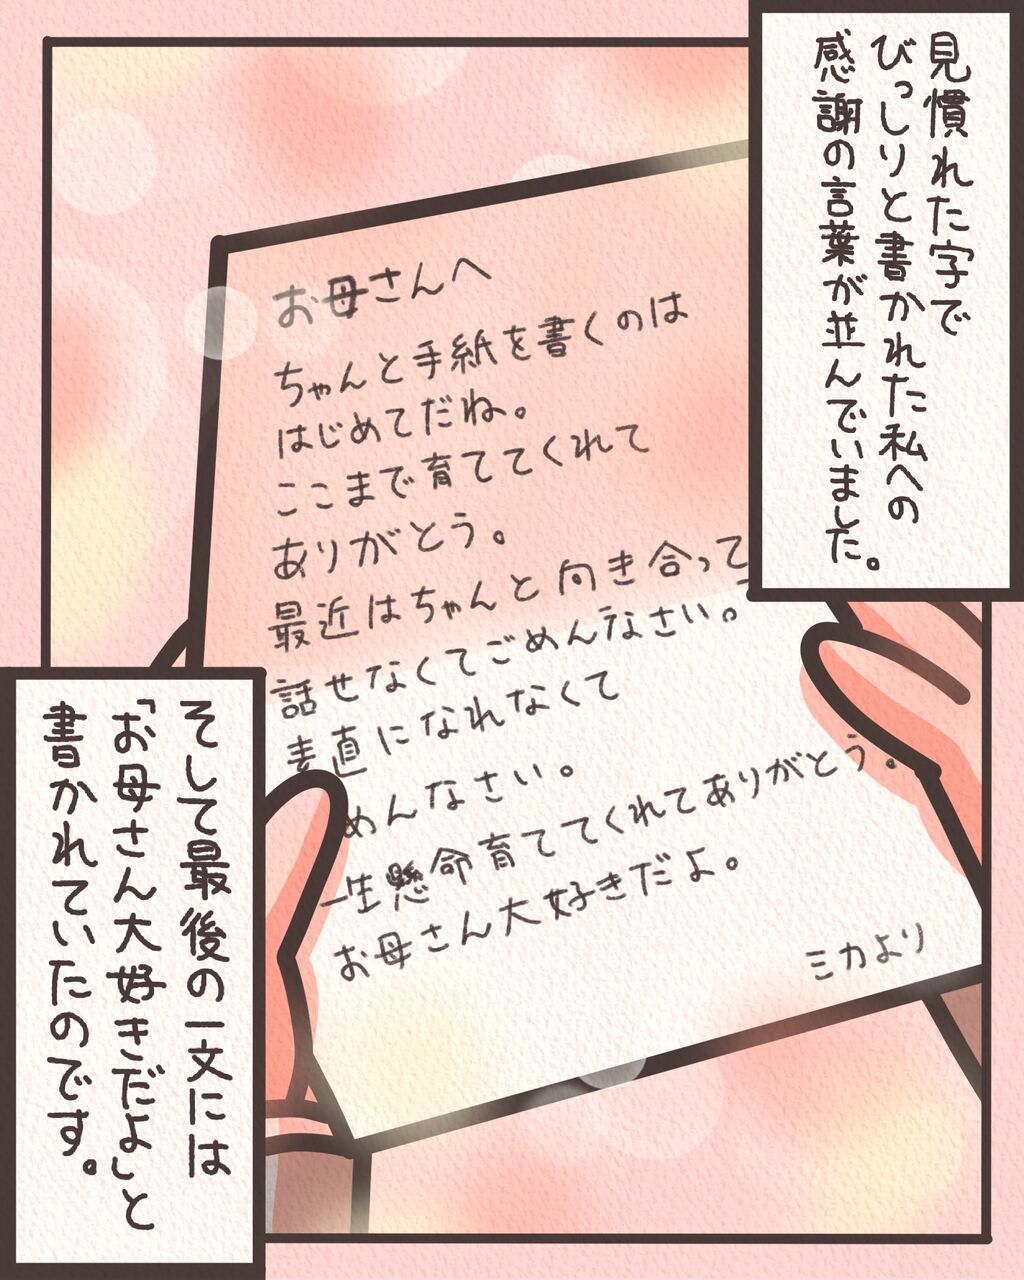 見慣れた字で
びっしりと書かれた私への
感謝の言葉が並んでいました。
お母さんへ
ちゃんと手紙を書くのは
はじめてだね。
ここまで育ててくれて
ありがとう。
最近はちゃんと向き合って
話せなくてごめんなさい。
素直になれなくて
めんなさい。
一生懸命育ててくれてありがとう。
お母さん大好きだよ。
ミカより
そして最後の一文には
「お母さん大好きだよ」と
書かれていたのです。